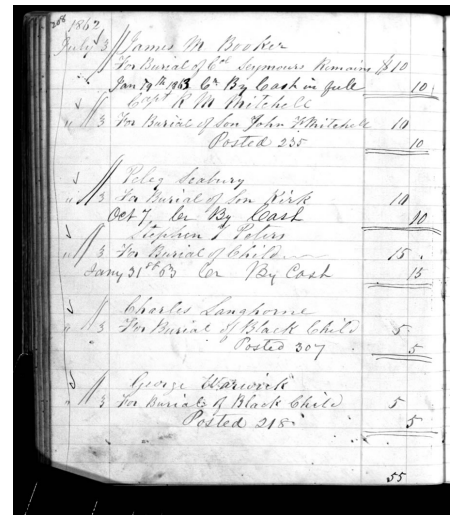 208 1862
July 3 James M Booker
For Burial of Col Seymours Remains $10
Jan 19th 1863 Cr By Cash in full 10
Capt R M Mitchell
" 3 For Burial of Son John Mitchell 10
Posted 235 10
Peleg Seabury
" 3 For Burial of Son Kirk 10
Oct 7, Cr By Cash 10
Stephen T Peters
" 3 For Burial of Child 15
Jany 31st 63 Cr By Cash 15
Charles Langhorne
" 3 For Burial of Black Child 5
Posted 307 5
George Warwick
" 3 For Burial of Black Child 5
Posted 218 5
55